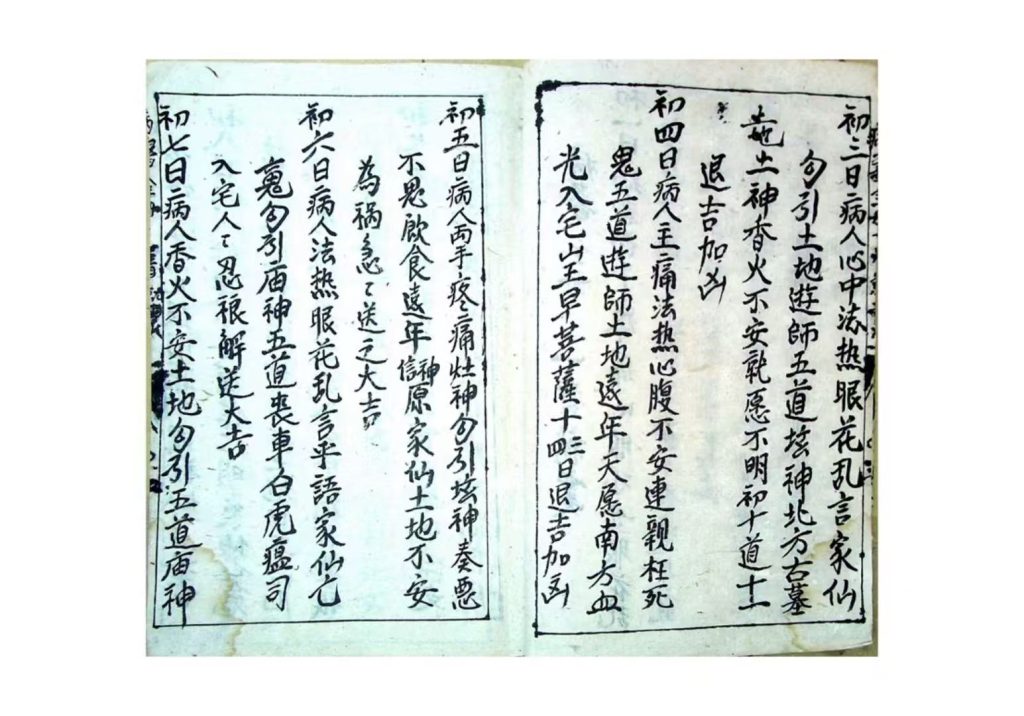 初三日病人心中法热眼花乱言家仙
勾引土地遊師五道坟神北方古墓
土神香火不安許愿不明初十道十一
退吉加凶
初四日病人主痛法熱心腹不安連親枉死
鬼五道遊師土地遠年天愿南方血
光入宅山王早菩薩十三四日退吉加凶
初五日病人両手疼痛灶神勾引坟神奏惡
不思飲食遠年信神原家仙土地不安
為祸急〻送之大吉
初六日病人法热眼花乱言乎語家仙亡
勾引庙神五道喪車白虎瘟司
入宅人〻忍解送大吉
初七日病人香火不安土地勾引五道庙神